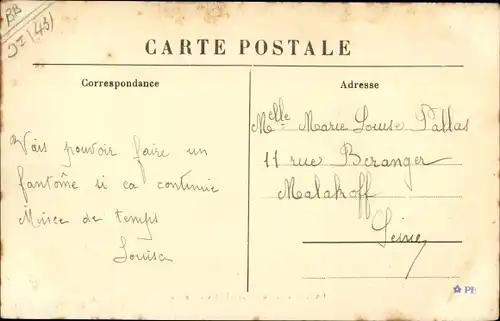 BB
CARTE POSTALE
Correspondance
Adresse
Vais pouvoir faire un
fantôme si ca continue
de temps
Louisa
Melle Marie Louise Pallas
11 rue Beranger
Malakoff
Seine